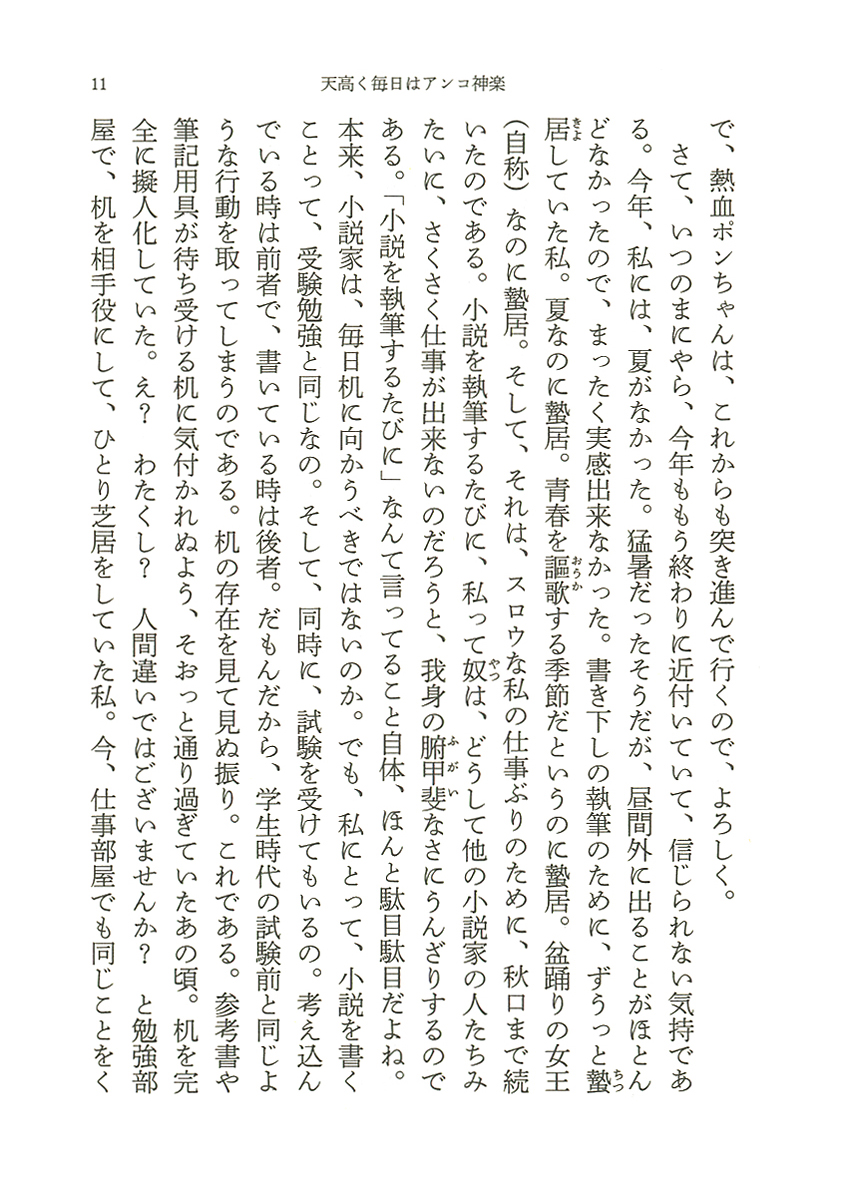 11
天高く毎日はアンコ神楽
で、熱血ポンちゃんは、これからも突き進んで行くので、よろしく。
さて、いつのまにやら、今年ももう終わりに近付いていて、信じられない気持であ
る。今年、私には、夏がなかった。猛暑だったそうだが、昼間外に出ることがほとん
どなかったので、まったく実感出来なかった。書き下しの執筆のために、ずうっと蟄ちつ
居きよしていた私。夏なのに蟄居。青春を謳歌おうかする季節だというのに蟄居。盆踊りの女王
（自称）なのに蟄居。そして、それは、スロウな私の仕事ぶりのために、秋口まで続
いたのである。小説を執筆するたびに、私って奴やつは、どうして他の小説家の人たちみ
たいに、さくさく仕事が出来ないのだろうと、我身の腑甲斐ふがいなさにうんざりするので
ある。「小説を執筆するたびに」なんて言ってること自体、ほんと駄目駄目だよね。
本来、小説家は、毎日机に向かうべきではないのか。でも、私にとって、小説を書く
ことって、受験勉強と同じなの。そして、同時に、試験を受けてもいるの。考え込ん
でいる時は前者で、書いている時は後者。だもんだから、学生時代の試験前と同じよ
うな行動を取ってしまうのである。机の存在を見て見ぬ振り。これである。参考書や
筆記用具が待ち受ける机に気付かれぬよう、そおっと通り過ぎていたあの頃。机を完
全に擬人化していた。え？　わたくし？　人間違いではございませんか？　と勉強部
屋で、机を相手役にして、ひとり芝居をしていた私。今、仕事部屋でも同じことをく